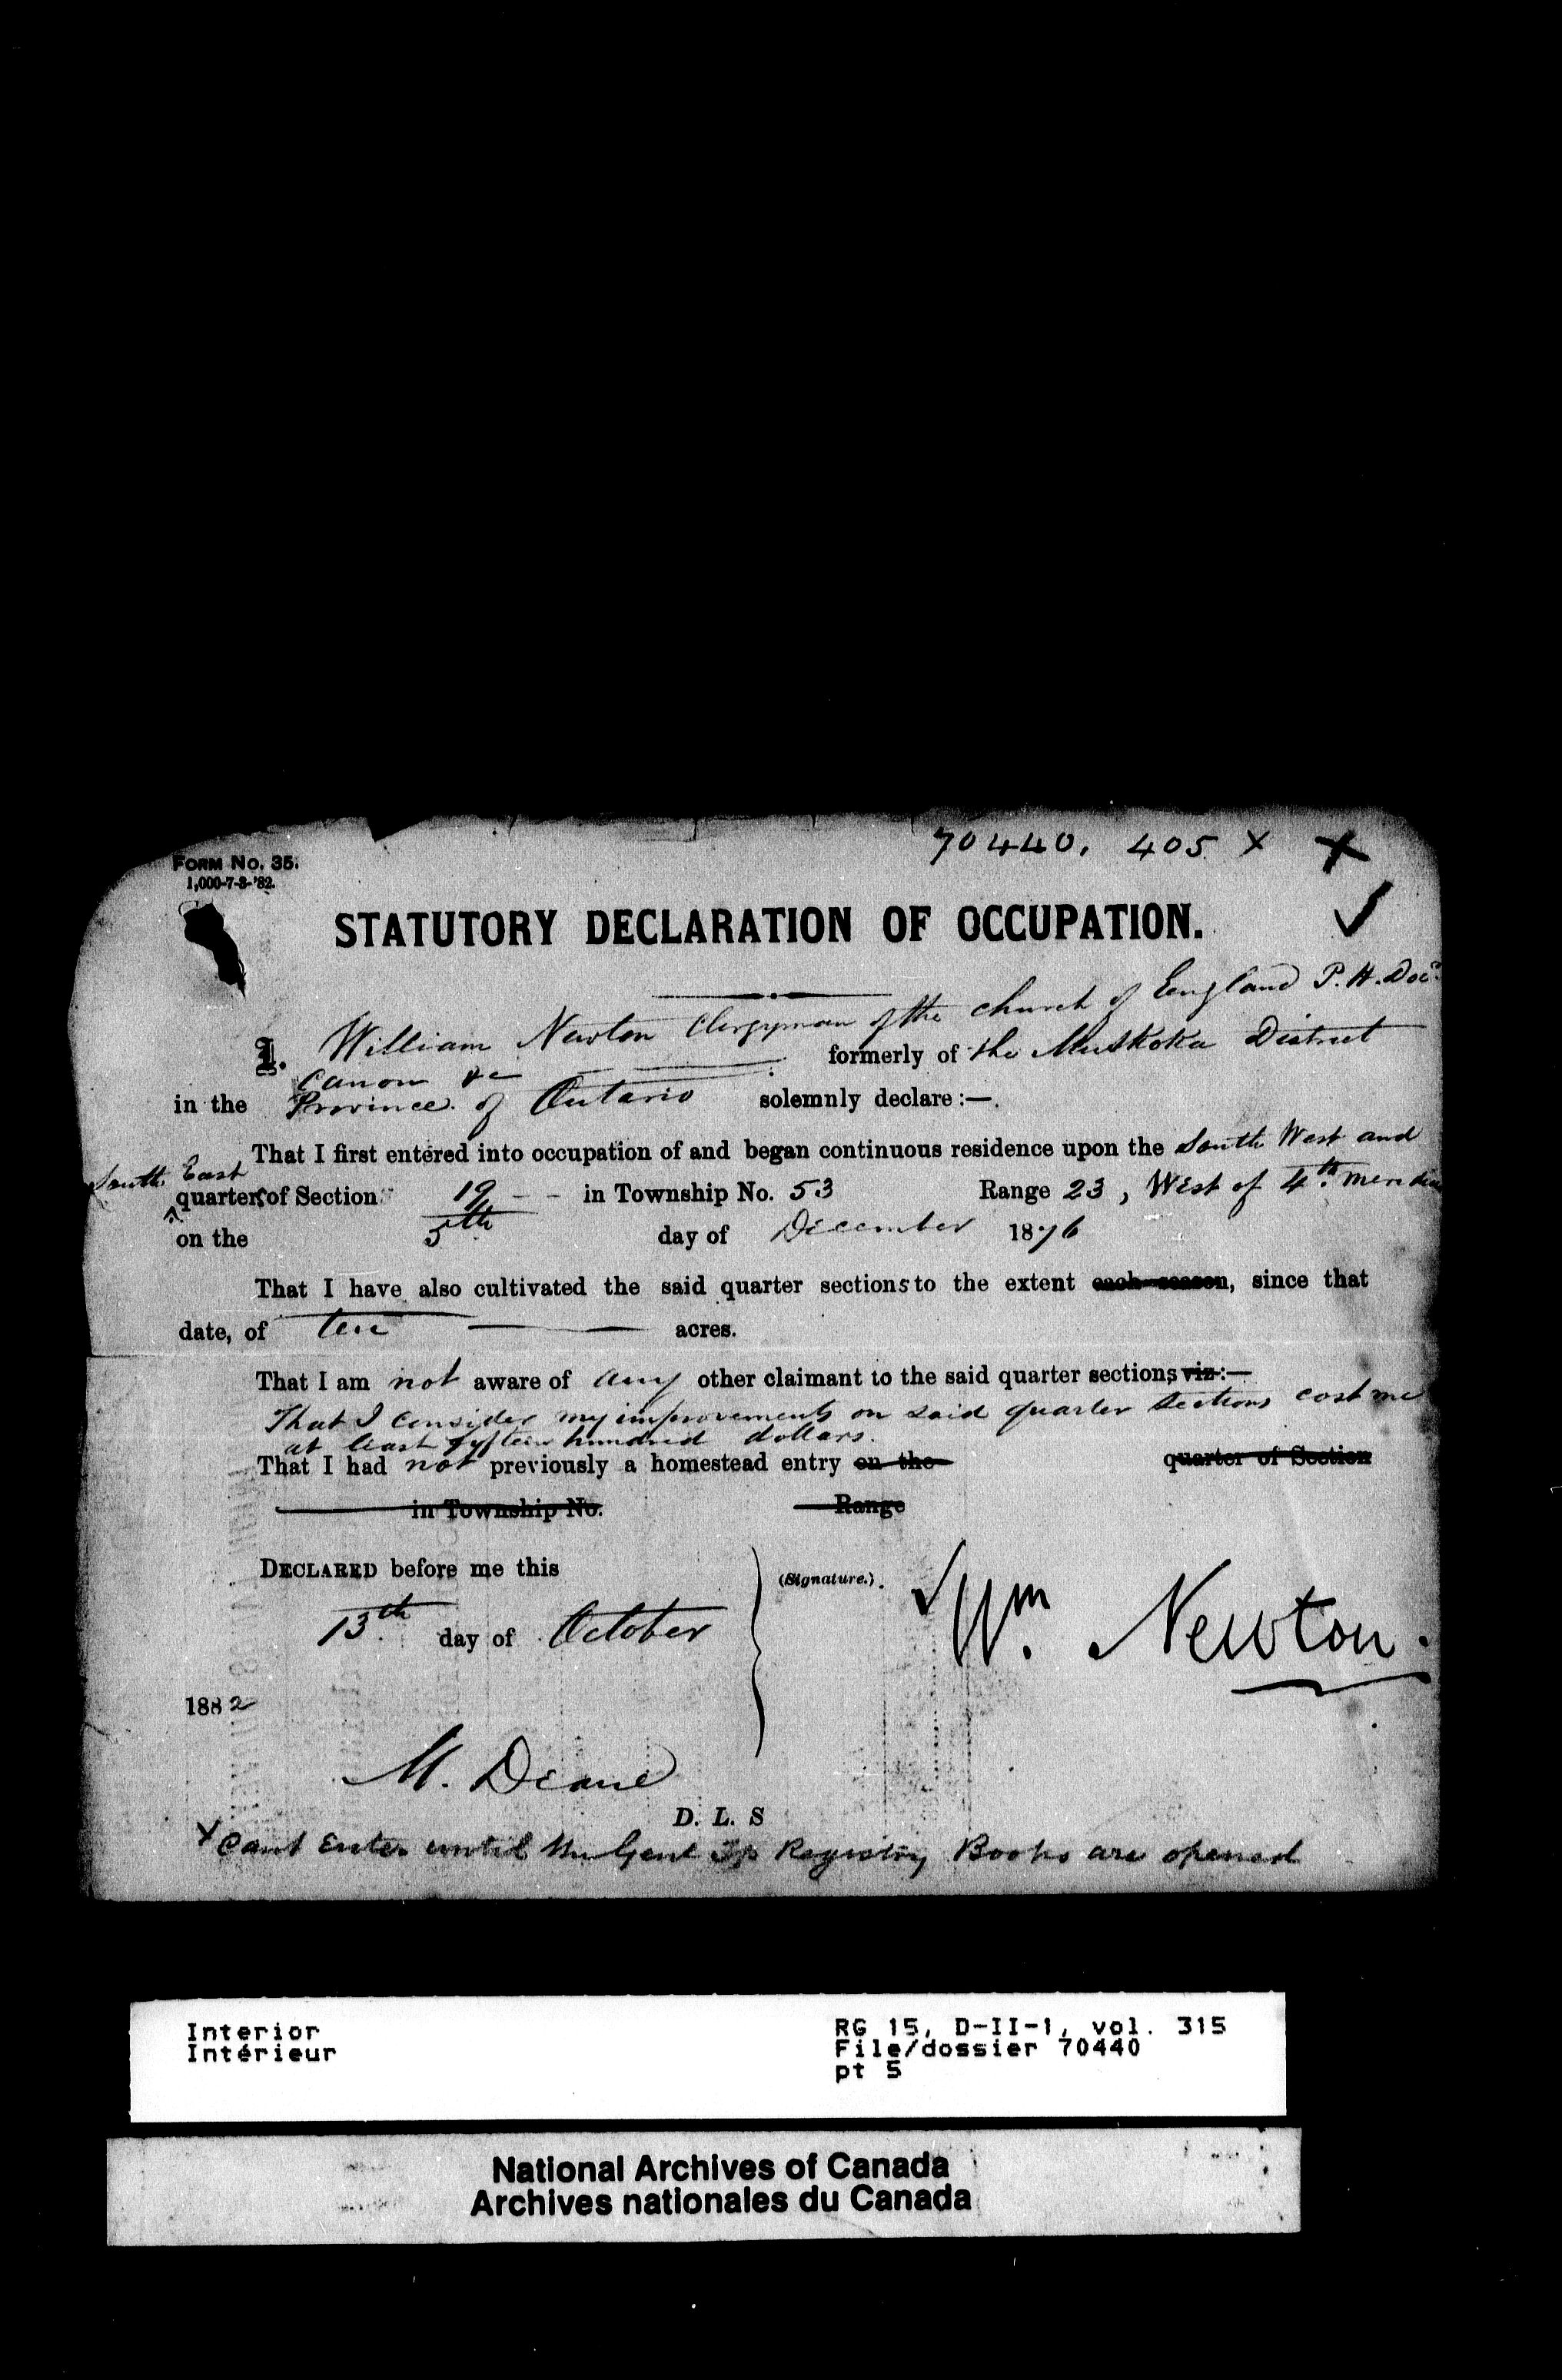 70440. 405 x X
FORM NO. 35.
1,000-7-3-'82.
STATUTORY DECLARATION OF OCCUPATION.
I. William Newton Clergyman of the church of England P.H. Doc.
Canon &c formerly of the Muskoka District
in the Province of Ontario solemnly declare :—
That I first entered into occupation of and began continuous residence upon the South West and
South East
quarters of Section 19 in Township No. 53 Range 23, West of 4th meridian
on the 5th day of December 1876
That I have also cultivated the said quarter sections to the extent each season, since that
date, of ten acres.
That I am not aware of any other claimant to the said quarter sections viz:—
That I consider my improvements on said quarter sections cost me
at least fifteen hundred dollars.
That I had not previously a homestead entry on the quarter of Section
in Township No. Range
DECLARED before me this
(Signature.) Wm Newton.
13th day of October
1882
M. Deane
D. L. S
x Cant Enter until the Genl Tp Registry Books are opened
Interior
Intérieur
RG 15, D-II-1, vol. 315
File/dossier 70440
pt 5
National Archives of Canada
Archives nationales du Canada